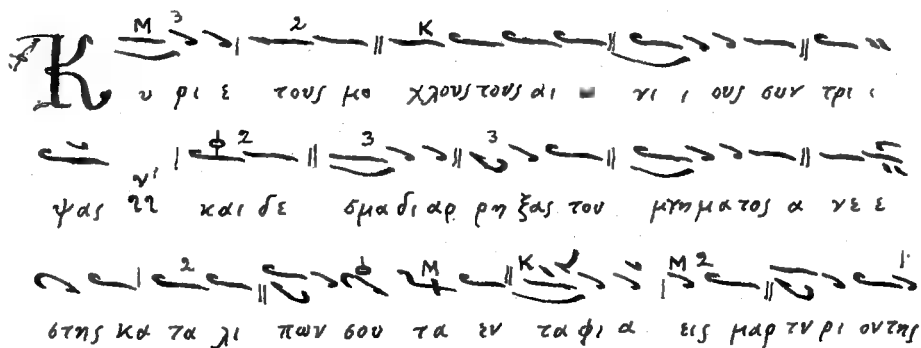 Κ υ ρι ε τους μο χλους τους αι ω νι ι ους συν τρι ι
ψας και δε σμα δι αρ ρη ξας του μνη μα τος α νε ε
στης κα τα λι πων σου τα εν τα φι α εις μαρ τυ ρι ον της